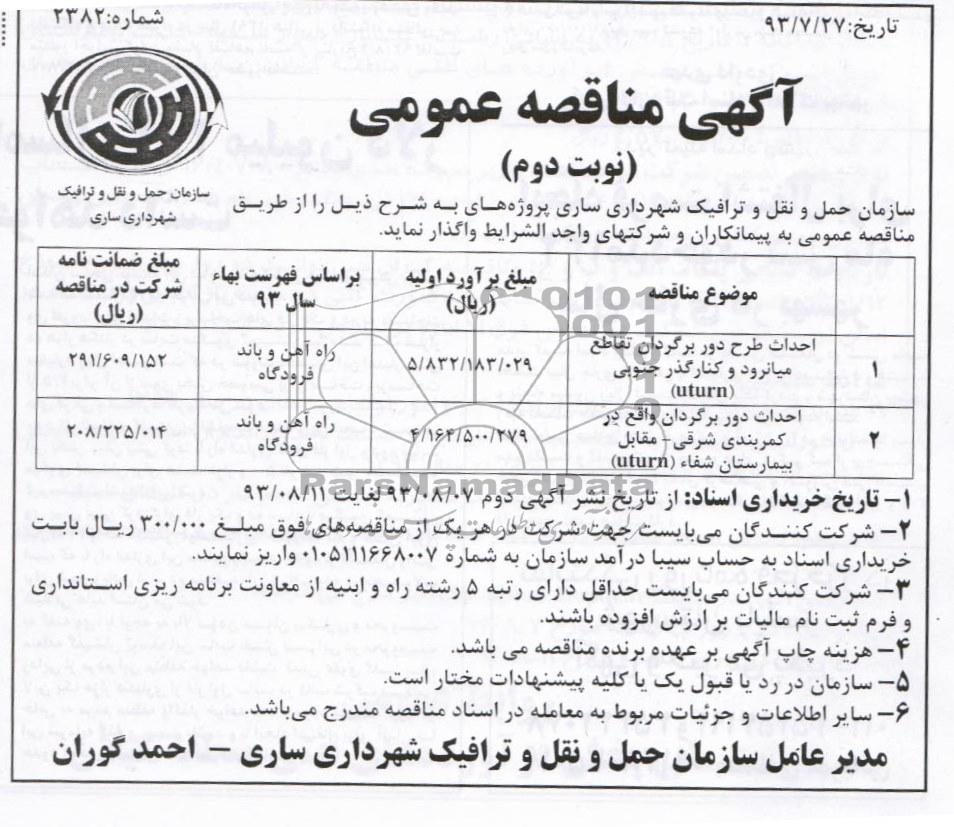 تاریخ:۹۳/۷/۲۷
شماره:۲۳۸۲
آگهی مناقصه عمومی
(نوبت دوم)
سازمان حمل و نقل و ترافیک
شهرداری ساری
سازمان حمل و نقل و ترافیک شهرداری ساری پروژه‌های به شرح ذیل را از طریق
مناقصه عمومی به پیمانکاران و شرکتهای واجد الشرایط واگذار نماید.
موضوع مناقصه
مبلغ برآورد اولیه
(ریال)
براساس فهرست بهاء
سال ۹۳
مبلغ ضمانت نامه
شرکت در مناقصه
(ریال)
۱
احداث طرح دور برگردان تقاطع
میانرود و کنارگذر جنوبی
(uturn)
۵/۸۳۲/۱۸۳/۰۲۹
راه آهن و باند
فرودگاه
۲۹۱/۶۰۹/۱۵۲
۲
احداث دور برگردان واقع در
کمربندی شرقی – مقابل
بیمارستان شفاء (uturn)
۴/۱۶۴/۵۰۰/۲۷۹
راه آهن و باند
فرودگاه
۲۰۸/۲۲۵/۰۱۴
ParsNamadData
۱– تاریخ خریداری اسناد: از تاریخ نشر آگهی دوم ۹۳/۰۸/۰۷ لغایت ۹۳/۰۸/۱۱
۲– شرکت کنندگان می‌بایست جهت شرکت در هر یک از مناقصه‌های فوق مبلغ ۳۰۰/۰۰۰ ریال بابت
خریداری اسناد به حساب سیبا درآمد سازمان به شماره ۰۱۰۵۱۱۱۶۶۸۰۰۷ واریز نمایند.
۳– شرکت کنندگان می‌بایست حداقل دارای رتبه ۵ رشته راه و ابنیه از معاونت برنامه ریزی استانداری
و فرم ثبت نام مالیات بر ارزش افزوده باشند.
۴– هزینه چاپ آگهی بر عهده برنده مناقصه می باشد.
۵– سازمان در رد یا قبول یک یا کلیه پیشنهادات مختار است.
۶– سایر اطلاعات و جزئیات مربوط به معامله در اسناد مناقصه مندرج می‌باشد.
مدیر عامل سازمان حمل و نقل و ترافیک شهرداری ساری – احمد گوران